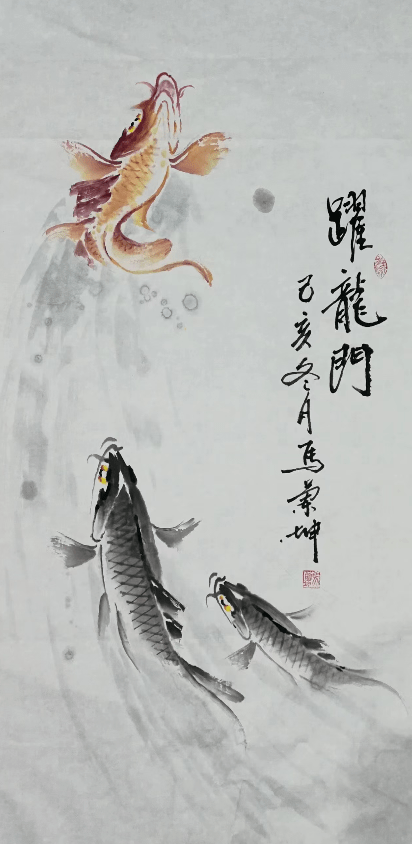 躍龍門
己亥冬月馬蘭坤